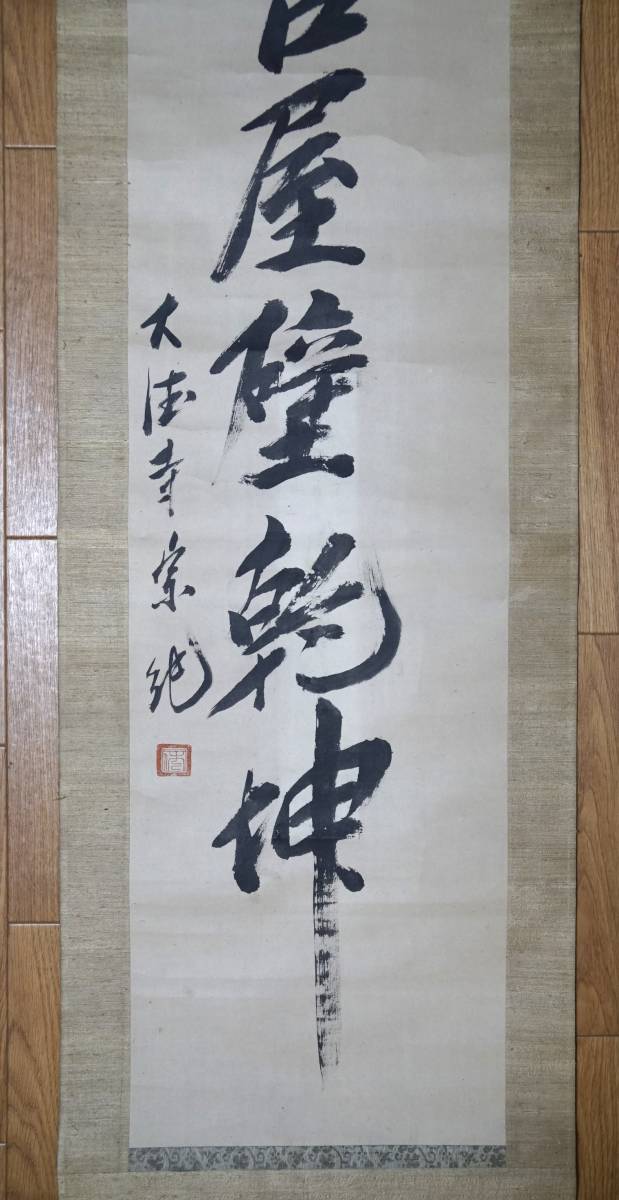 屋壁乾坤
大徳寺宗